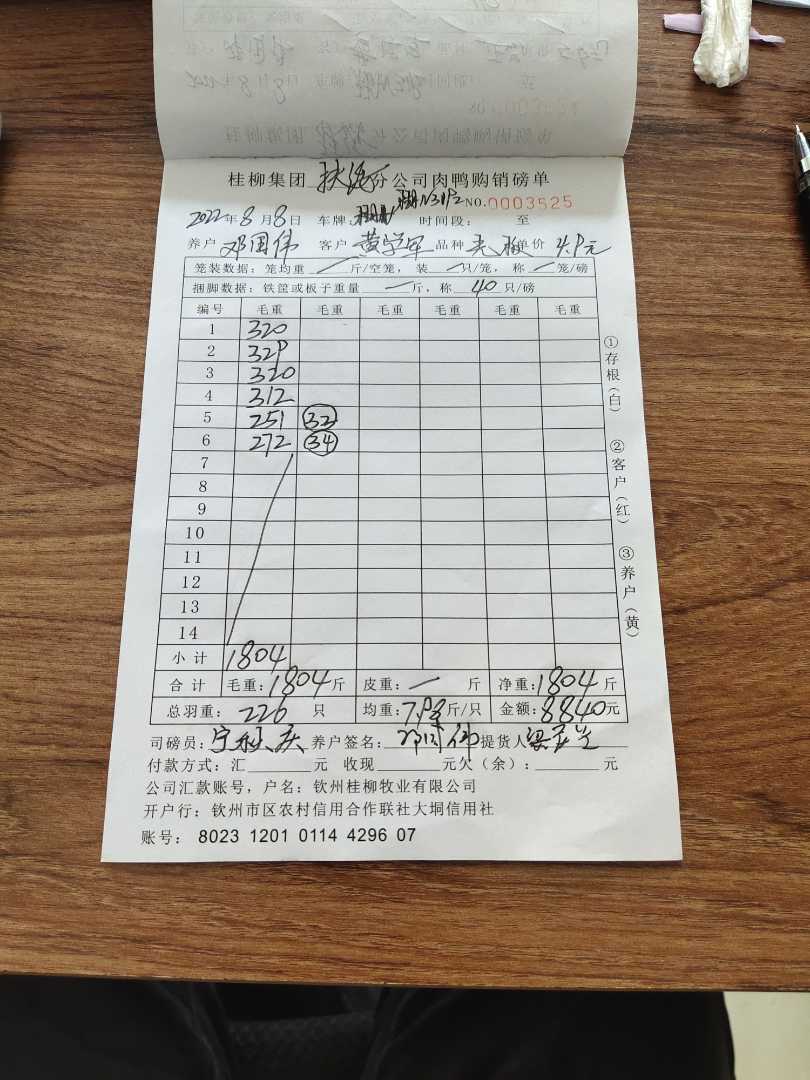 桂柳集团 扶绥分公司肉鸭购销磅单
NO.0003525
2022年8月8日 车牌: N31P2 时间段: 至
养户 邓国伟 客户 黄学军 品种 单价 4.9元
笼装数据:笼均重 — 斤/空笼,装 — 只/笼,称 — 笼/磅
捆脚数据:铁筐或板子重量 — 斤,称 40 只/磅
编号 毛重 毛重 毛重 毛重 毛重 毛重
1 320
2 329
3 320
4 312
5 251 32
6 272 34
7
8
9
10
11
12
13
14
小计 1804
合计 毛重:1804斤 皮重:— 斤 净重:1804斤
总羽重:226 只 均重:7.98斤/只 金额:8840元
司磅员: 养户签名:邓国伟 提货人
付款方式:汇 元 收现 元欠(余): 元
公司汇款账号,户名:钦州桂柳牧业有限公司
开户行:钦州市区农村信用合作联社大垌信用社
账号: 8023 1201 0114 4296 07
①存根(白)
②客户(红)
③养户(黄)